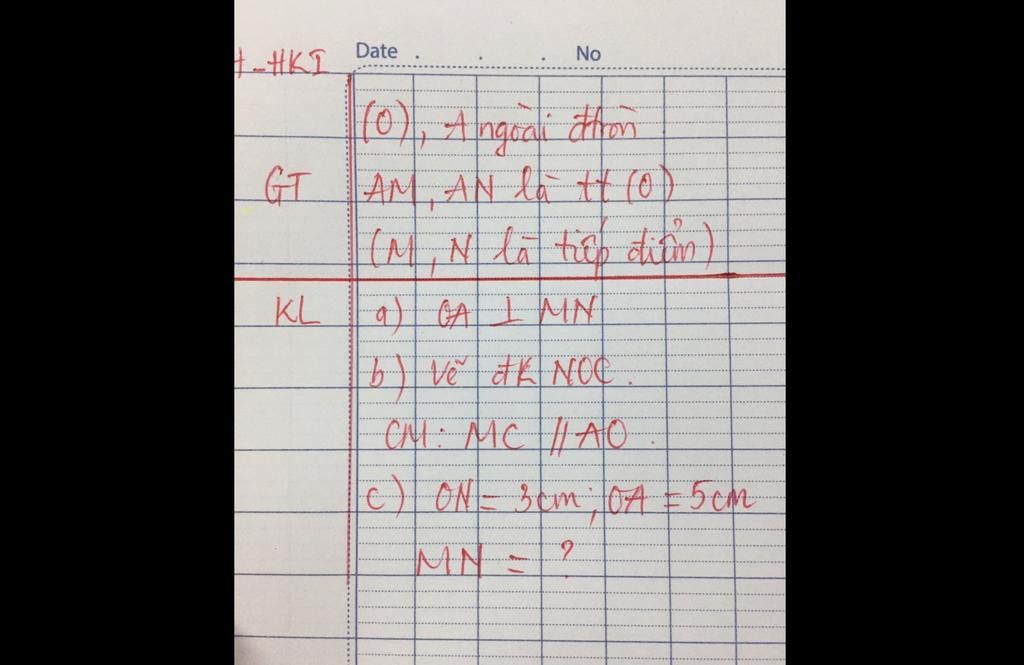 Date . . . No
-HKI
(O), A ngoài đtròn
GT AM, AN là tt (O)
(M, N là tiếp điểm)
KL a) OA ⊥ MN
b) Vẽ đk NOC.
CM: MC // AO.
c) ON = 3cm; OA = 5cm
MN = ?